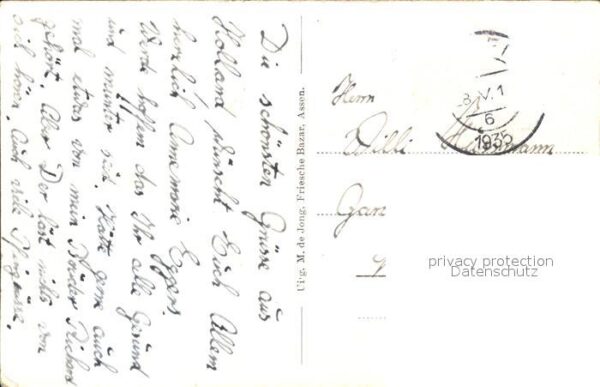 Die schönsten Grüsse aus
Holland wünscht Euch Allen
herzlich Annemarie Eggers.
Werde hoffen das Ihr alle Gesund
und munter seid. Hätte gerne auch
mal etwas von mein Brüder Richard
gehört. Aber Der läst nichts von
sich hören. Auch viele Pfingstgrüsse.
Uitg. M. de Jong, Friesche Bazar, Assen.
8.V.1
6
1932
Herrn
Willi
privacy protection
Datenschutz